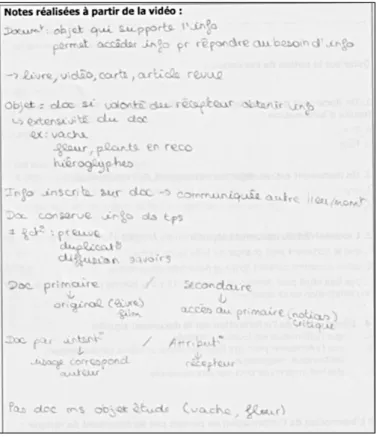 Notes réalisées à partir de la vidéo :
Docum^t : objet qui supporte l'info
permet accéder info pr répondre au besoin d'info
→ livre, vidéo, carte, article revue
Objet = doc si volonté du récepteur obtenir info
↳ extensivité du doc
ex : vache
fleur, plante en reco
hiéroglyphes
Info inscrite sur doc → communiquée autre lieu/momt
Doc conserve info ds tps
≠ fct° : preuve
duplicat°
diffusion savoirs
Doc primaire / Secondaire
↓ ↓
original (livre) accès au primaire (notices)
film critique
Doc par intent° / Attribut°
↓ ↓
usage correspond récepteur
auteur
Pas doc ms objet étude (vache, fleur)